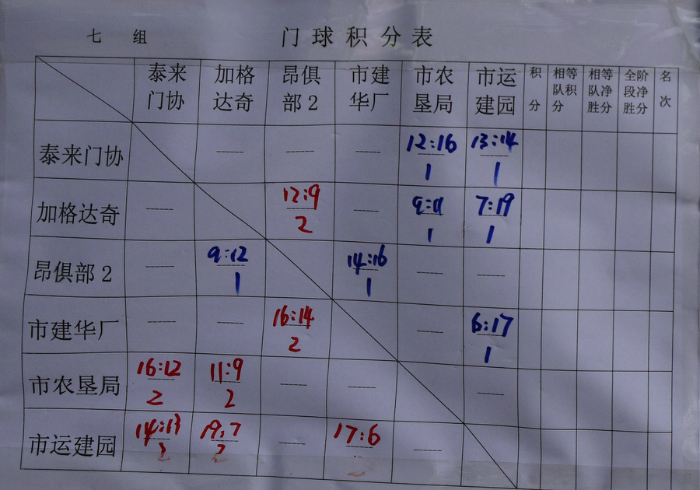 七 组 门球积分表
泰来 加格 昂俱 市建 市农 市运 积 相等 相等 全阶 名
门协 达奇 部2 华厂 垦局 建园 分 队积 队净 段净 次
分 胜分 胜分
泰来门协 ---- ---- ---- 12:16 13:14
1 1
加格达奇 ---- 12:9 ---- 9:11 7:19
2 1 1
昂俱部2 ---- 9:12 14:16 ---- ----
1 1
市建华厂 ---- ---- 16:14 ---- 6:17
2 1
市农垦局 16:12 11:9 ---- ---- ----
2 2
市运建园 14:13 19:7 ---- 17:6 ----
2 2 2